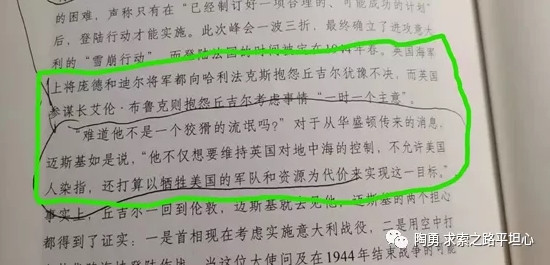 的困难，声称只有在“已经制订好一项合理的、可能成功的计划”
后，登陆行动才能实施。此次峰会一波三折，最终确立了进攻意大
利的“雪崩行动”，而登陆法国的时间被定在1944年春。英国海军
上将庞德和迪尔将军都向哈利法克斯抱怨丘吉尔犹豫不决，而英国
参谋长艾伦·布鲁克则抱怨丘吉尔考虑事情“一时一个主意”。
“难道他不是一个狡猾的流氓吗？”对于从华盛顿传来的消息，
迈斯基如是说，“他不仅想要维持英国对地中海的控制，不允许美国
人染指，还打算以牺牲美国的军队和资源为代价来实现这一目标。”
事实上，丘吉尔一回到伦敦，迈斯基就去见他，迈斯基的两个担心
都得到了证实：一是首相现在考虑实施意大利战役，二是用空中打
当这位大使问及在1944年结束战争的可能
陶勇 求索之路平坦心